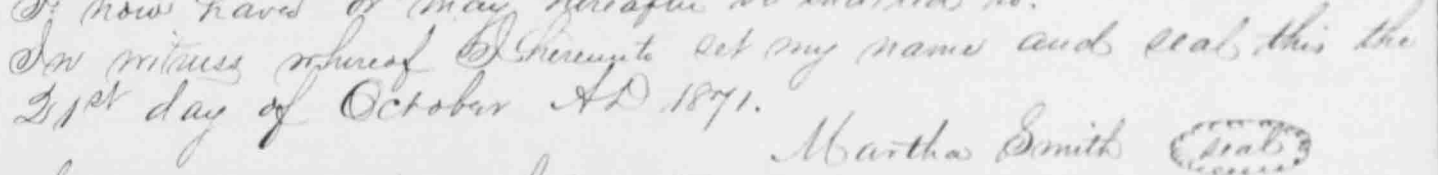 I now have or may hereafter be entitled to.
In witness whereof I hereunto set my name and seal this the
21st day of October AD 1871.
Martha Smith seal